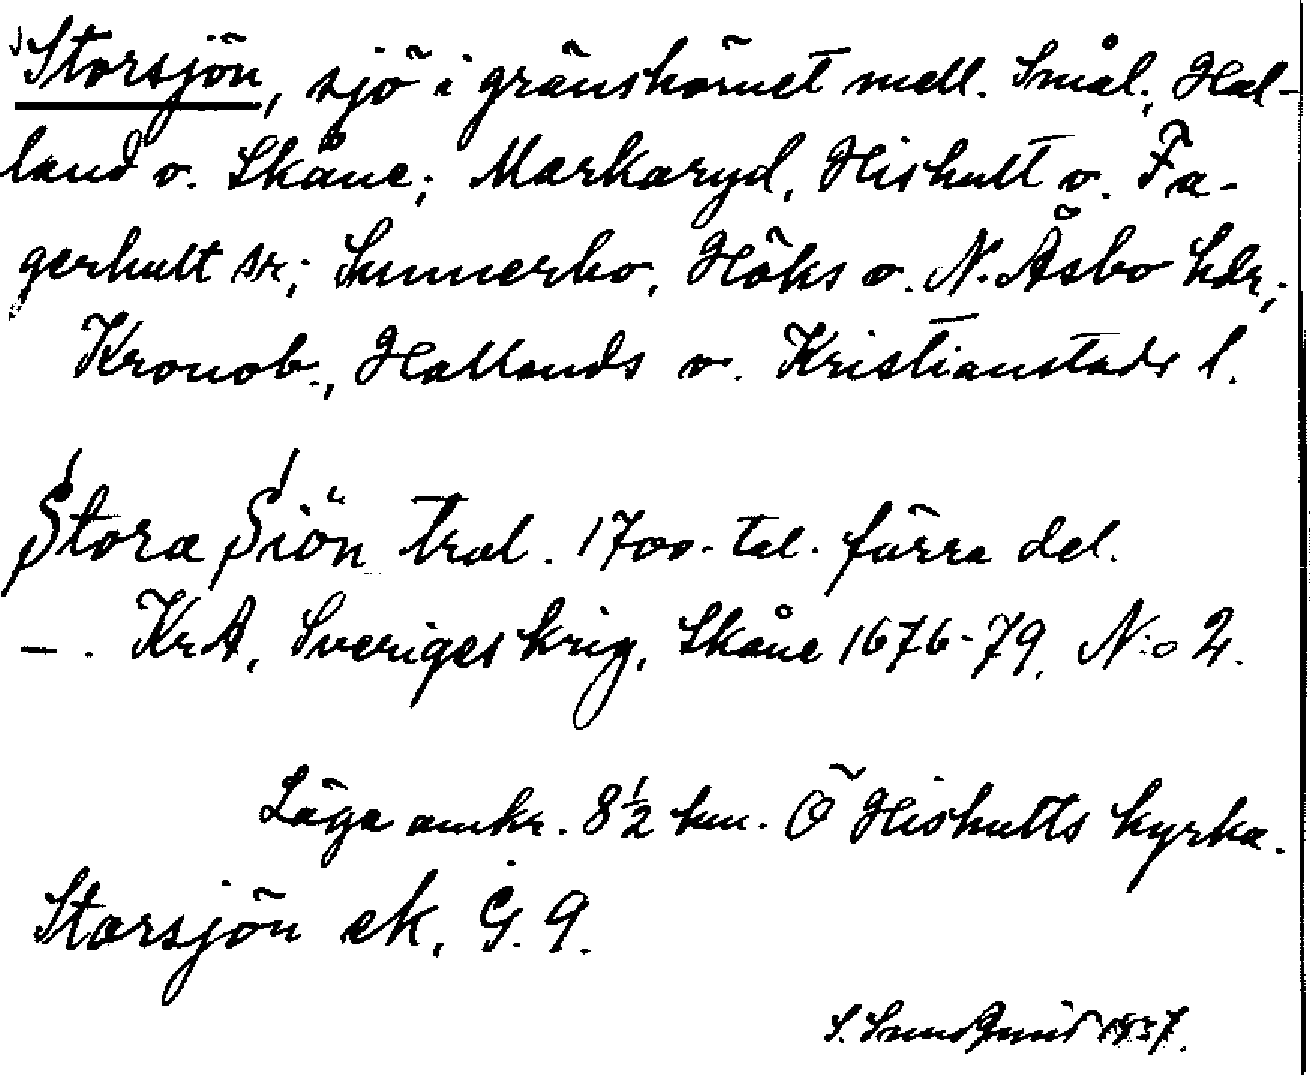 Storsjön, sjö i gränshörnet mell. Smål., Hal-
land o. Skåne; Markaryd, Hishult o. Fa-
gerhult sn; Sunnerbo, Höks o. N. Åsbo hdr;
Kronob., Hallands o. Kristianstads l.
Stora Siön trol. 1700-tal. förra del.
- . KrA, Sveriges krig, Skåne 1676-79, N:o 2.
Läge omkr. 8 1/2 km. Ö Hishults kyrka.
Storsjön ek, G. 9.
S. 1937.